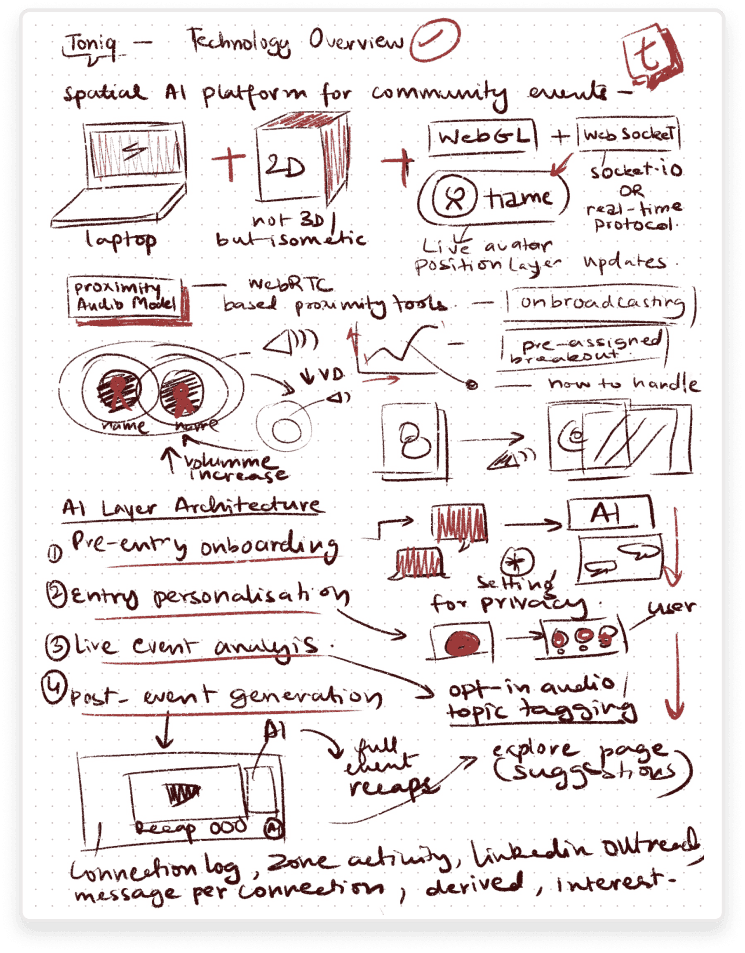 Toniq — Technology Overview
t
spatial AI platform for community events —
2D
WebGL + WebSocket
name
socket.io
OR
real-time
protocol.
laptop
not 3D/
but isometic
Live avatar
position layer updates.
proximity
Audio Model — webRTC
based proximity tools. — onbroadcasting
— pre-assigned
breakout.
VD
— how to handle
name name
volumme
increase
AI Layer Architecture
① Pre-entry onboarding
AI
② Entry personalisation
setting
for privacy.
user
③ Live event analyis.
④ post-event generation
opt-in audio/
topic tagging
AI
full
event
recaps
explore page
(suggestions)
Recap 000 AI
Connection log, zone activity, linkedin outreach,
message per connection, derived, interest-